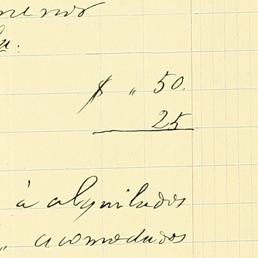 $ „ 50.
25
à alquilados
„ acomodados